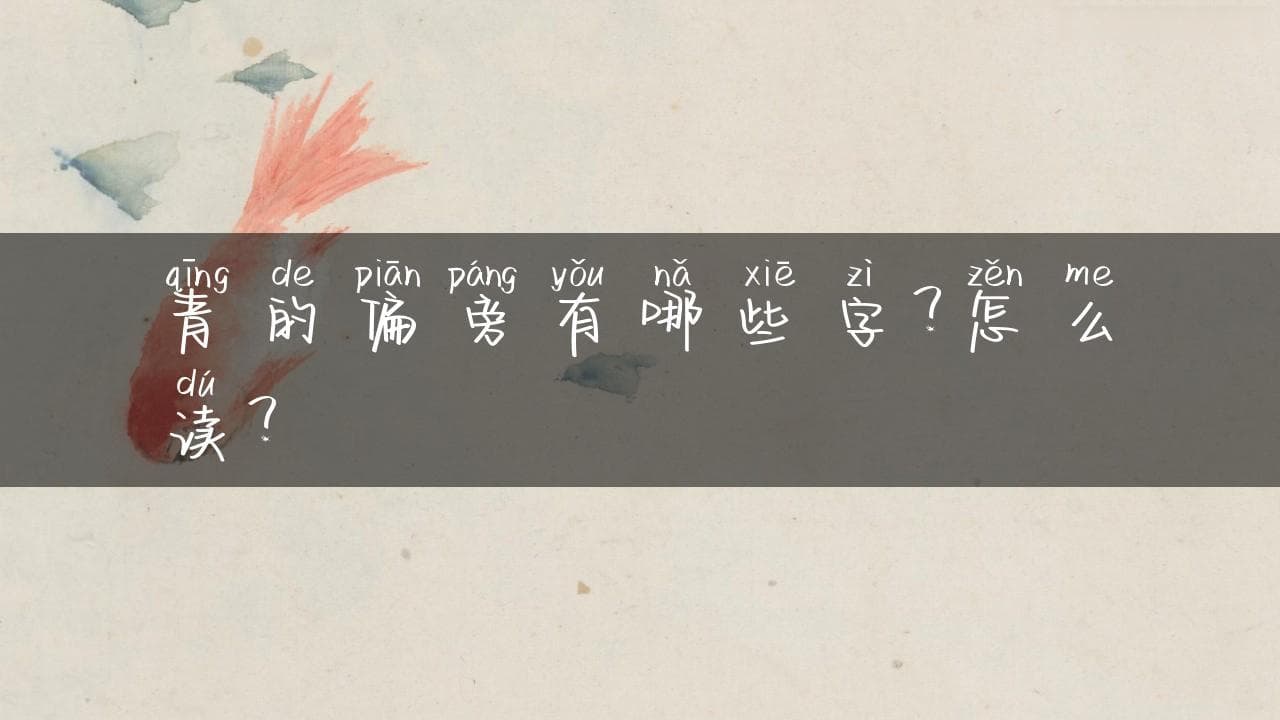 qīng de piān páng yǒu nǎ xiē zì zěn me
青的偏旁有哪些字？怎么
dú
读？